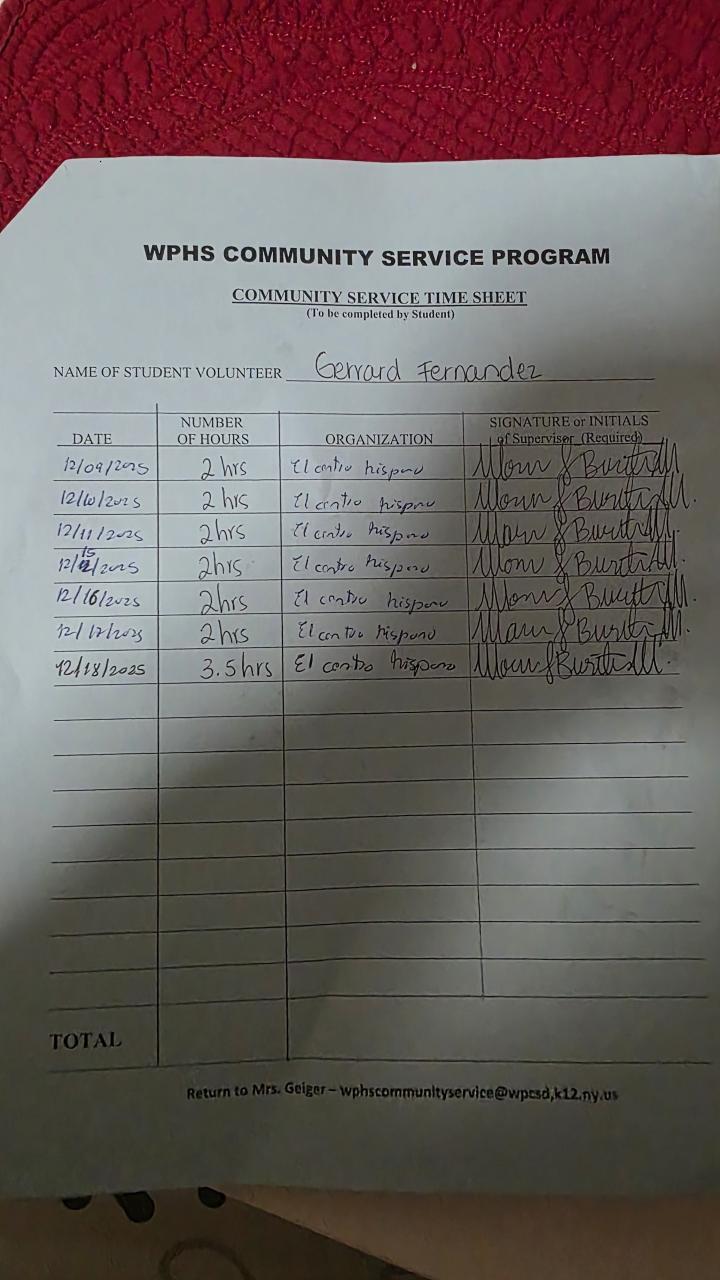 WPHS COMMUNITY SERVICE PROGRAM
COMMUNITY SERVICE TIME SHEET
(To be completed by Student)
NAME OF STUDENT VOLUNTEER Gerrard Fernandez
DATE NUMBER OF HOURS ORGANIZATION SIGNATURE or INITIALS of Supervisor (Required)
12/09/2025 2 hrs El centro hispano
12/10/2025 2 hrs El centro hispano
12/11/2025 2hrs El centro hispano
12/15/2025 2hrs El centro hispano
12/16/2025 2hrs El centro hispano
12/17/2025 2hrs El centro hispano
12/18/2025 3.5 hrs El centro hispano
TOTAL
Return to Mrs. Geiger – wphscommunityservice@wpcsd,k12.ny.us